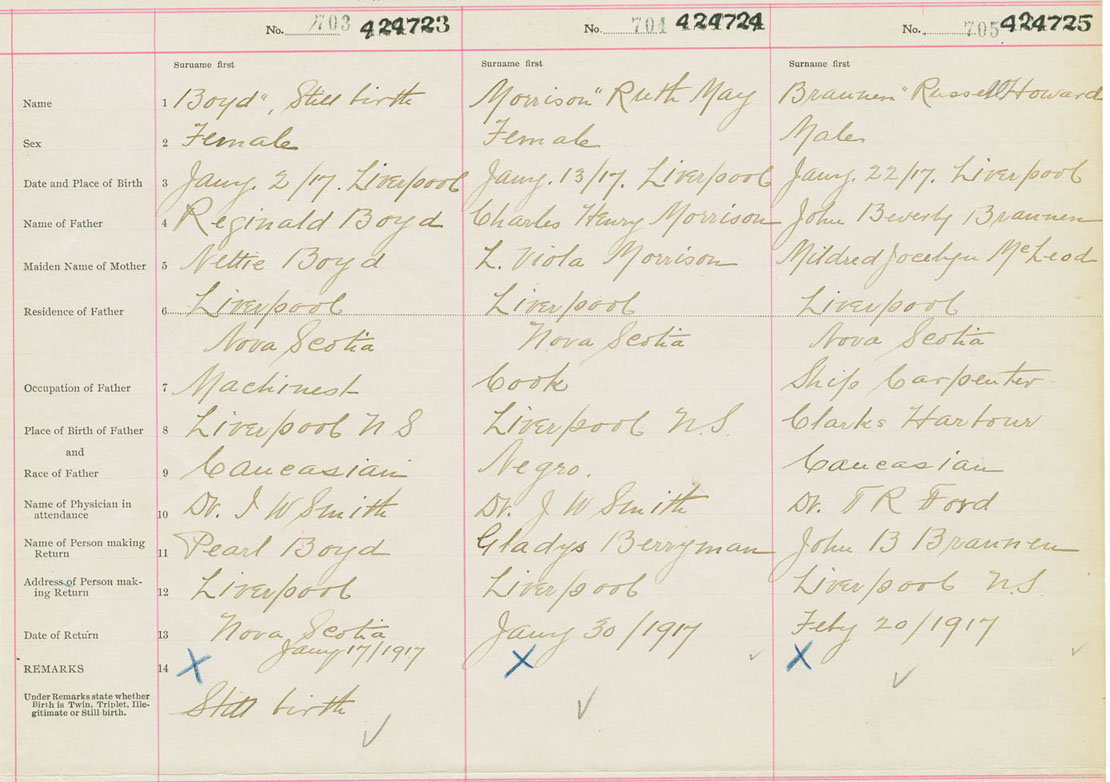 No. 703 424723 No. 704 424724 No. 705 424725
Surname first Surname first Surname first
Name 1 Boyd", Still birth Morrison" Ruth May Brannen" Russell Howard
Sex 2 Female Female Male
Date and Place of Birth 3 Jany. 2/17. Liverpool Jany. 13/17. Liverpool Jany. 22/17. Liverpool
Name of Father 4 Reginald Boyd Charles Henry Morrison John Beverly Brannen
Maiden Name of Mother 5 Nettie Boyd L. Viola Morrison Mildred Jocelyn McLeod
Residence of Father 6 Liverpool Liverpool Liverpool
Nova Scotia Nova Scotia Nova Scotia
Occupation of Father 7 Machinest Cook Ship Carpenter
Place of Birth of Father 8 Liverpool N S Liverpool N.S. Clarks Harbour
and
Race of Father 9 Caucasian Negro. Caucasian
Name of Physician in
attendance 10 Dr. J W Smith Dr. J W Smith Dr. T R Ford
Name of Person making
Return 11 Pearl Boyd Gladys Berryman John B Brannen
Address of Person mak-
ing Return 12 Liverpool Liverpool Liverpool N.S.
Date of Return 13 Nova Scotia Jany 30/1917 Feby 20/1917
Jany 17/1917
REMARKS 14 X X X
Under Remarks state whether
Birth is Twin, Triplet, Ille-
gitimate or Still birth. Still birth